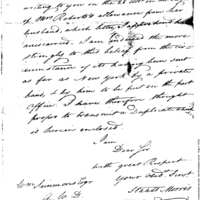 writing to you on the 25th ult. in
of Mrs Roberts's allowance from her
husband, which letter I apprehend has
miscarried. I am induced the more
strongly to this belief from the cir
cumstance of its having been sent
as far as New York by a private
hand, & by him to be put in the post
Office. I have therefore thought
proper to transmit a duplicate
is herein enclosed.
I am
Dear Sir
with great Respect
your Obd. Servt
Staats Morris
Wm Simmons Esqr
A. W. D